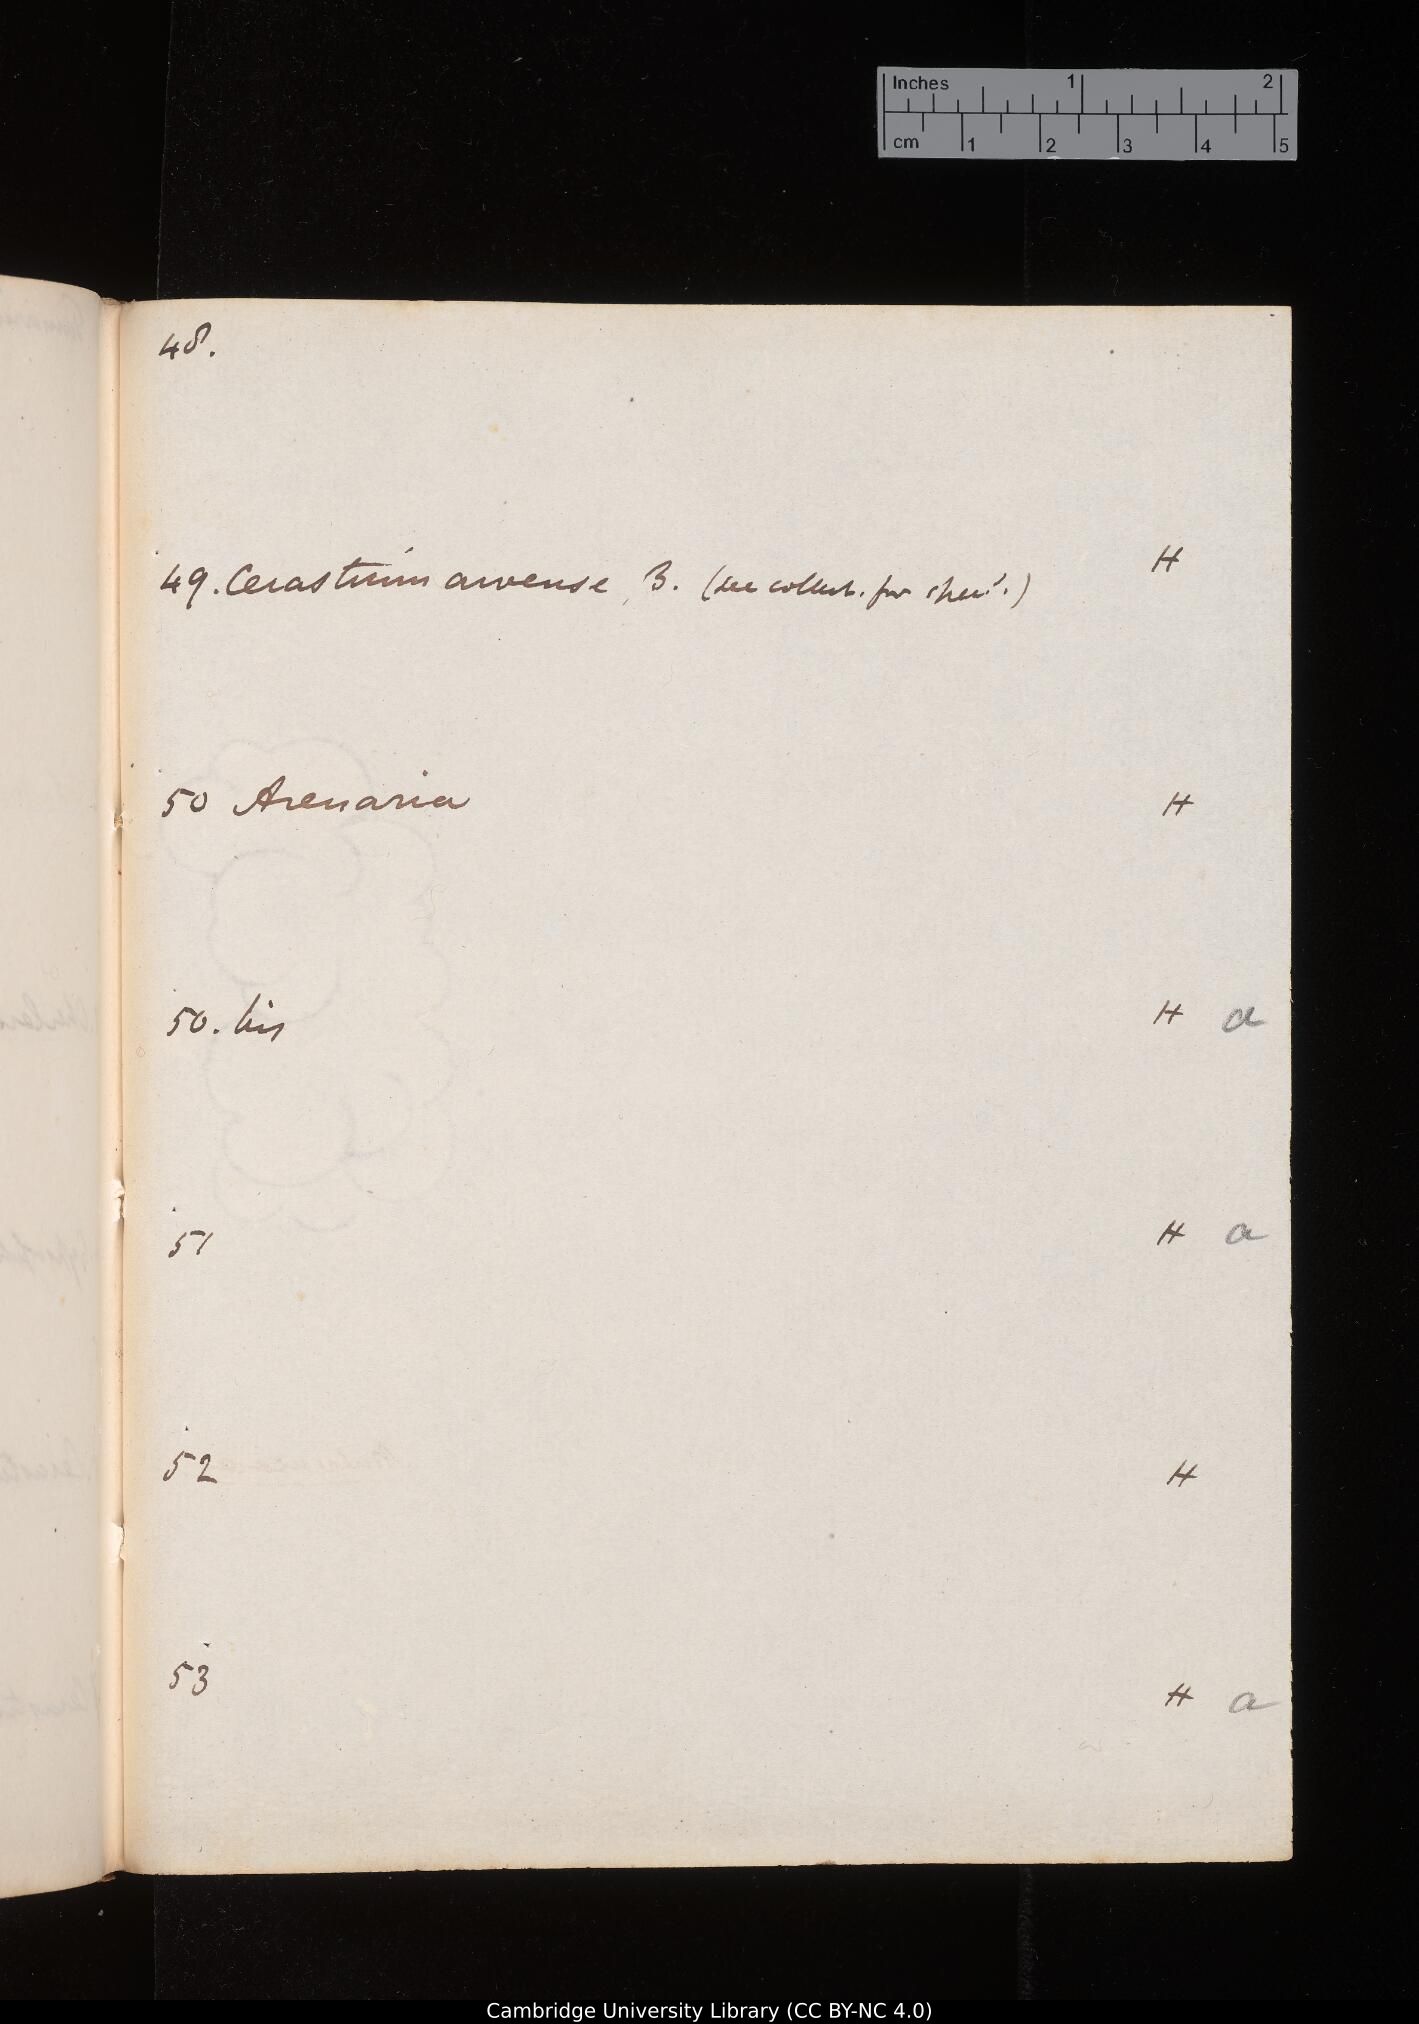 Inches 1 2
cm 1 2 3 4 5
48.
49. Cerastium arvense, β. (see collect. for spec.) H
50 Arenaria H
50. bis H a
51 H a
52 H
53 H a
Cambridge University Library (CC BY-NC 4.0)